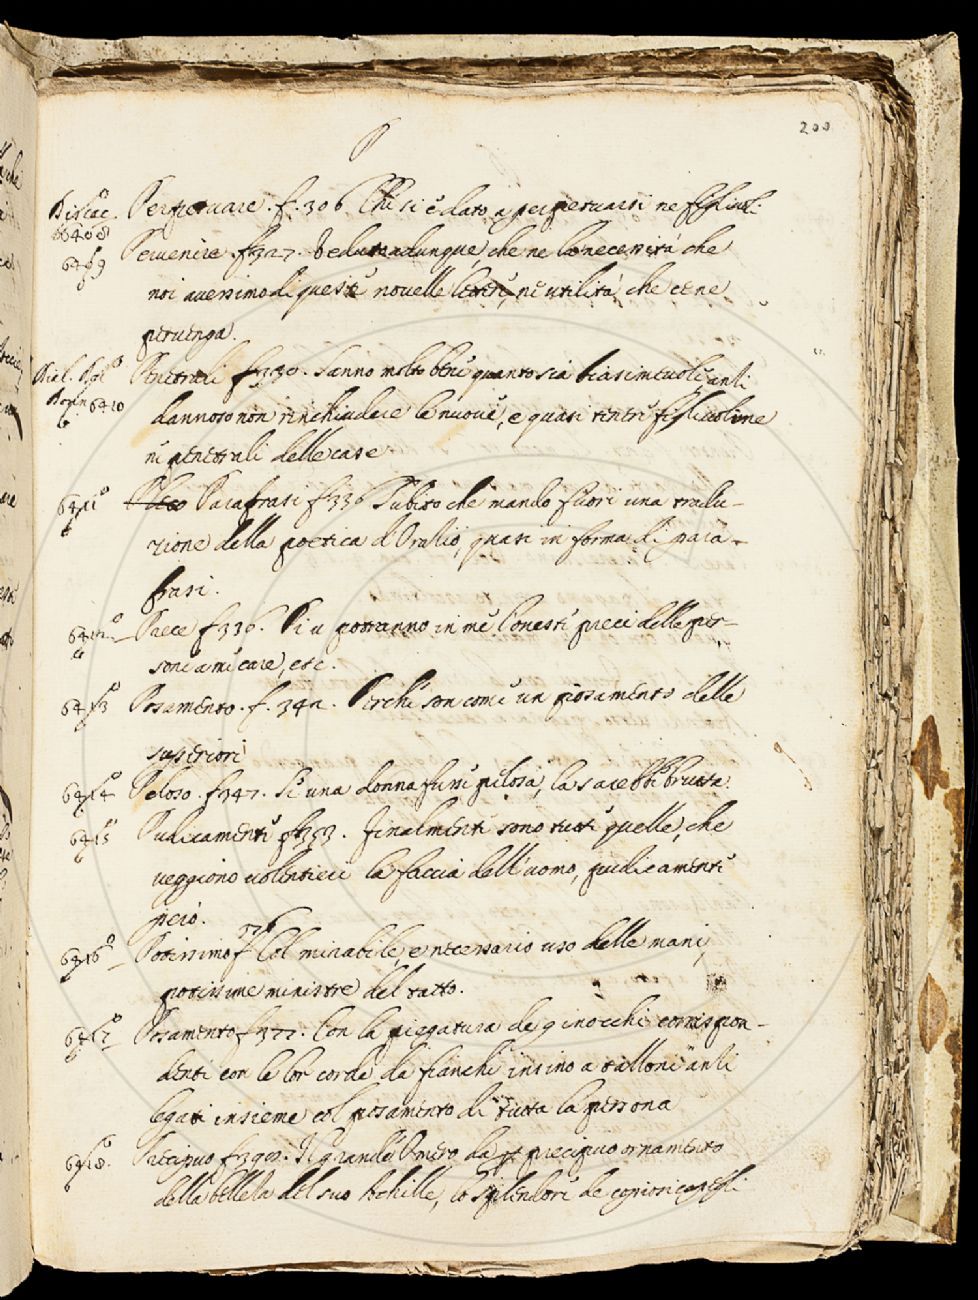 200
P
Discac. Perpetuare. f. 306 Chi si è dato a perpetuarsi ne figliuoli
6408
6409 Pervenire. f. 327. Veduta adunque, che ne la necessità che
noi avessimo di queste novelle leggi, ne utilità che ce ne
pervenga.
Penetrali f. 330. Sanno molto bene quanto sia biasimevole, anzi
6410 dannoso non rinchiudere le nuove, e quasi tenere figliuoline
ne penetrali delle case
6411 Parafrasi f 336 Subito che mandò fuori una tradu-
zione della poetica d'Orazio, quasi in forma di para-
frasi.
6412 Prece f. 336. Più potranno in me l'oneste preci delle per-
sone a me care, etc.
6413 Posamento. f. 342. Perché son come un posamento delle
superiori
6414 Peloso. f. 347. Se una donna fusse pelosa, la sarebbe brutta.
6415 Pudicamente f. 353. Finalmente sono tutte quelle, che
veggiono volentieri la faccia dell'uomo, pudicamente
però.
6416 Potissimo f. 376 Col mirabile, e necessario uso delle mani,
potissime ministre del tatto.
6417 Posamento f. 377. Con la piegatura de ginocchi corrispon-
denti con le lor corde da fianchi insino a talloni anzi
legati insieme col posamento di tutta la persona
6418. Precipuo f. 390. Il grande Omero da per precipuo ornamento
della belleza del suo Achille, lo splendore de copiosi capegli